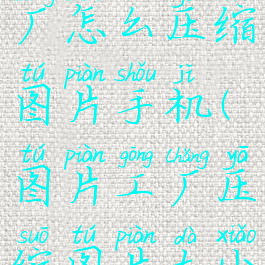 厂怎么压缩
tú piàn shǒu jī
图片手机(
tú piàn gōng chǎng yā
图片工厂压
suō tú piàn dà xiǎo
缩图片大小